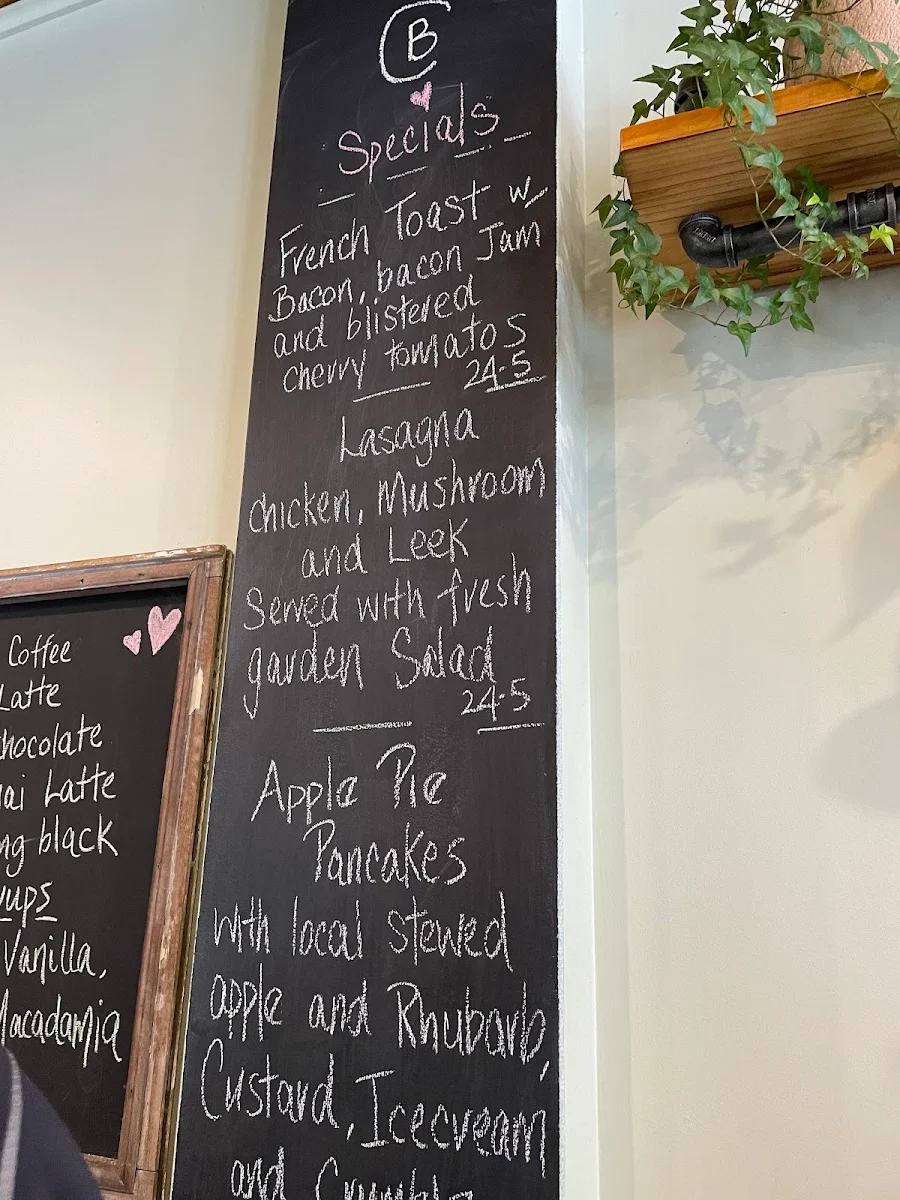 CB
Specials
French Toast w/
Bacon, bacon Jam
and blistered
cherry tomatos
24.5
Lasagna
chicken, Mushroom
and Leek
Served with fresh
garden Salad
24.5
Apple Pie
Pancakes
with local stewed
apple and Rhubarb,
Custard, Icecream
and Crumble
Coffee
Latte
hocolate
ai Latte
ng black
ups
Vanilla,
Macadamia